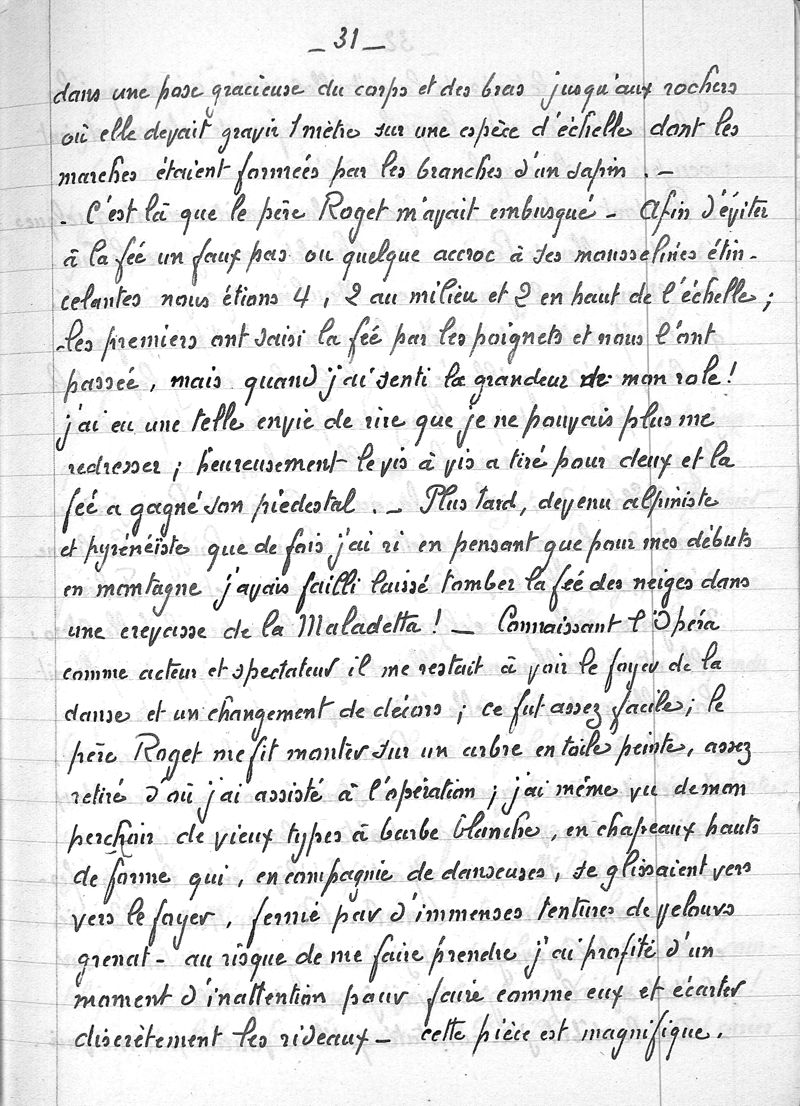 _ 31 _
dans une pose gracieuse du corps et des bras jusqu'aux rochers
où elle devait gravir 1 mètre sur une espèce d'échelle dont les
marches étaient formées par les branches d'un sapin . _
- C'est là que le père Roget m'avait embusqué - Afin d'éviter
à la feé un faux pas ou quelque accroc à ses mousselines étin-
celantes nous étions 4, 2 au milieu et 2 en haut de l'échelle ;
-les premiers ont saisi la feé par les poignets et nous l'ont
passeé, mais quand j'ai senti la grandeur de mon role !
j'ai eu une telle envie de rire que je ne pouvais plus me
redresser ; heureusement le vis à vis a tiré pour deux et la
feé a gagné son piedestal . _ Plus tard, devenu alpiniste
et pyrénéïste que de fois j'ai ri en pensant que pour mes débuts
en montagne j'avais failli laissé tomber la feé des neiges dans
une crevasse de la Maladetta ! _ Connaissant l'Opéra
comme acteur et spectateur il me restait à voir le foyer de la
danse et un changement de décors ; ce fut assez facile ; le
père Roget me fit monter sur un arbre en toile peinte, assez
retiré d'où j'ai assisté à l'opération ; j'ai même vu de mon
perchoir de vieux types à barbe blanche, en chapeaux hauts
de forme qui, en compagnie de danseuses, se glissaient vers
vers le foyer, fermé par d'immenses tentures de velours
grenat - au risque de me faire prendre j'ai profité d'un
moment d'inattention pour faire comme eux et écarter
discrètement les rideaux _ cette pièce est magnifique.